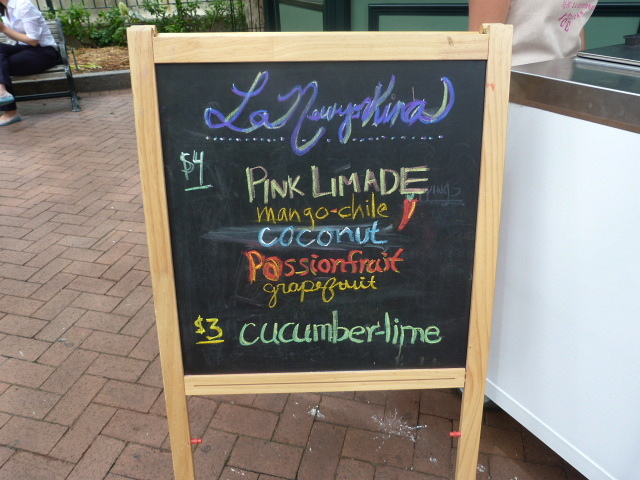 La Newyorkina
$4
PINK LIMADE
mango-chile
coconut
Passionfruit
grapefruit
$3 cucumber-lime